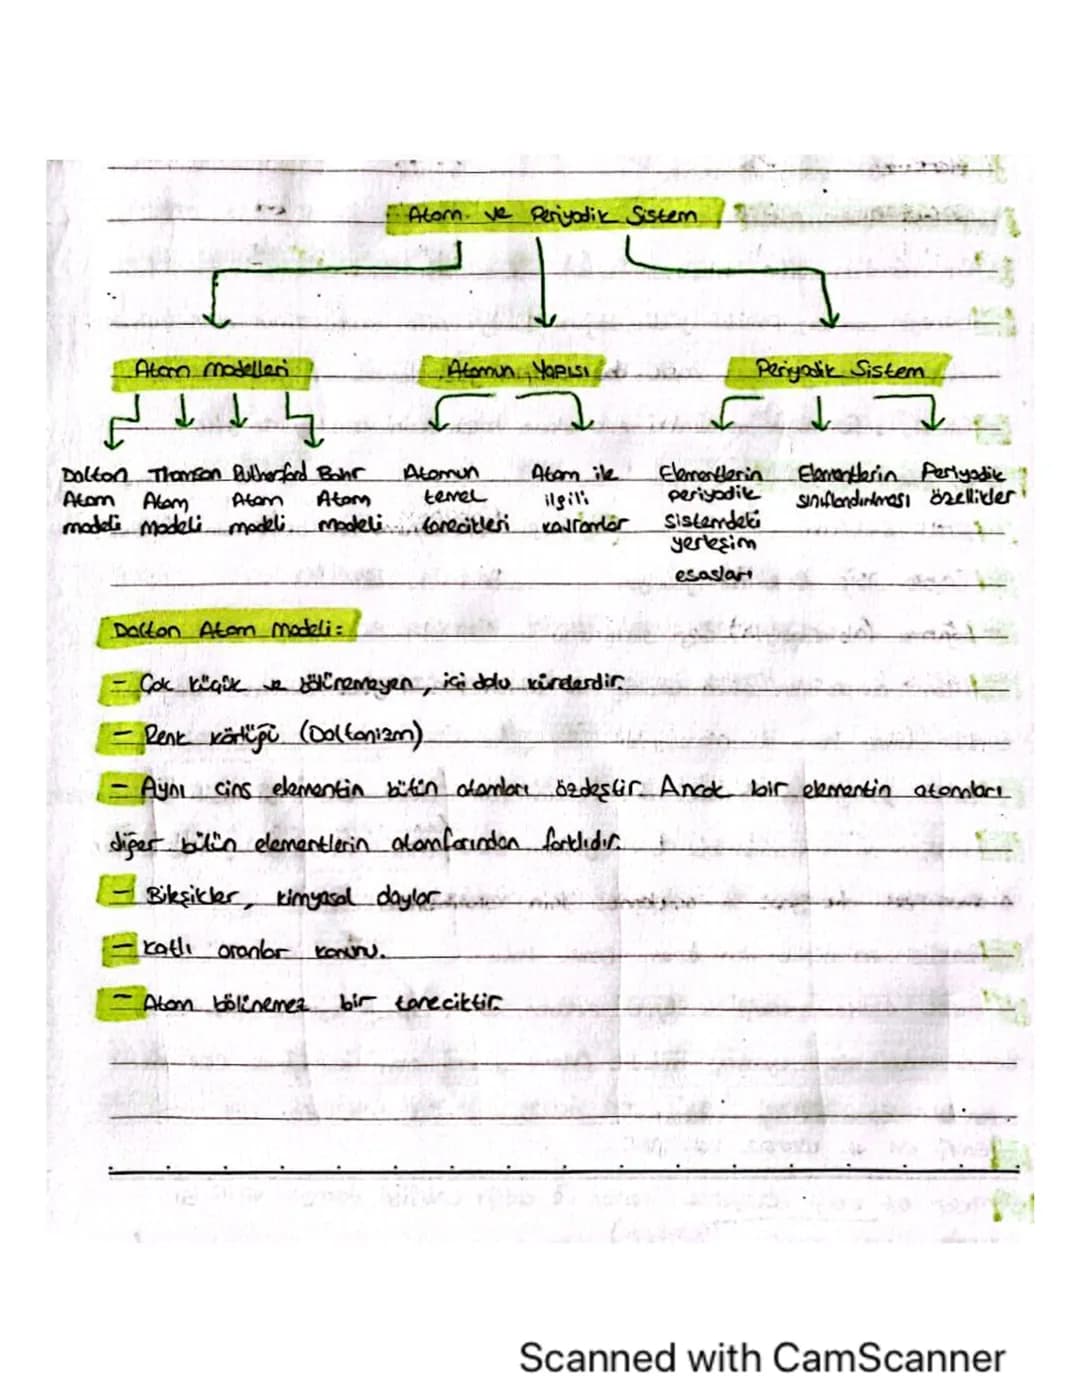 Atom ve Periyodik Sistem
Atom modelleri
Atomun Yapısı
Periyodik Sistem
Dalton Atom modeli
Thomson Atom modeli
Rutherford Atom modeli
Bohr Atom modeli
Atomun temel tanecikleri
Atom ile ilgili kavramlar
Elementlerin periyodik sistemdeki yerleşim esasları
Elementlerin sınıflandırılması
Periyodik özellikler
Dalton Atom Modeli:
- Çok küçük ve bölünemeyen, içi dolu kürelerdir.
- Renk körlüğü (Daltonizm)
- Aynı cins elementin bütün atomları özdeştir. Ancak bir elementin atomları
diğer bütün elementlerin atomlarından farklıdır.
- Bileşikler, kimyasal olaylar
- Katlı oranlar kanunu.
- Atom bölünemez bir taneciktir.
Scanned with CamScanner